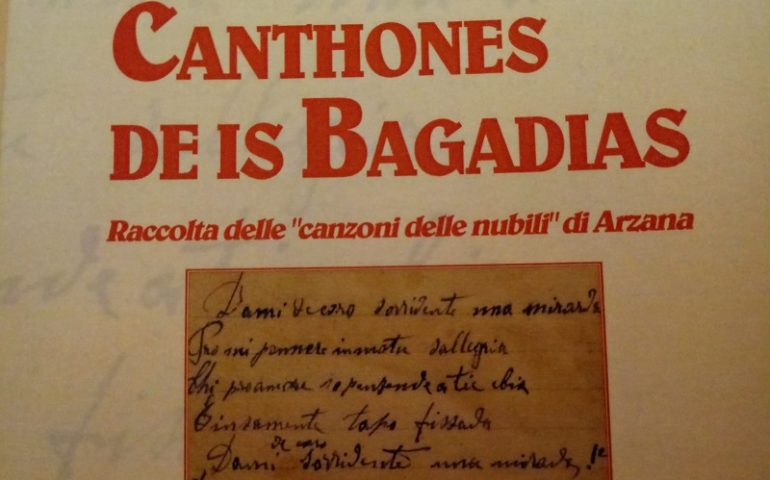 CANTHONES
DE IS BAGADIAS
Raccolta delle "canzoni delle nubili" di Arzana
Dami de coro sorridente una mirada
Pro mi ponnere in
Chi pro amore so pensende a tie ebia
tapo fissada
Dami de coro sorridente una mirada